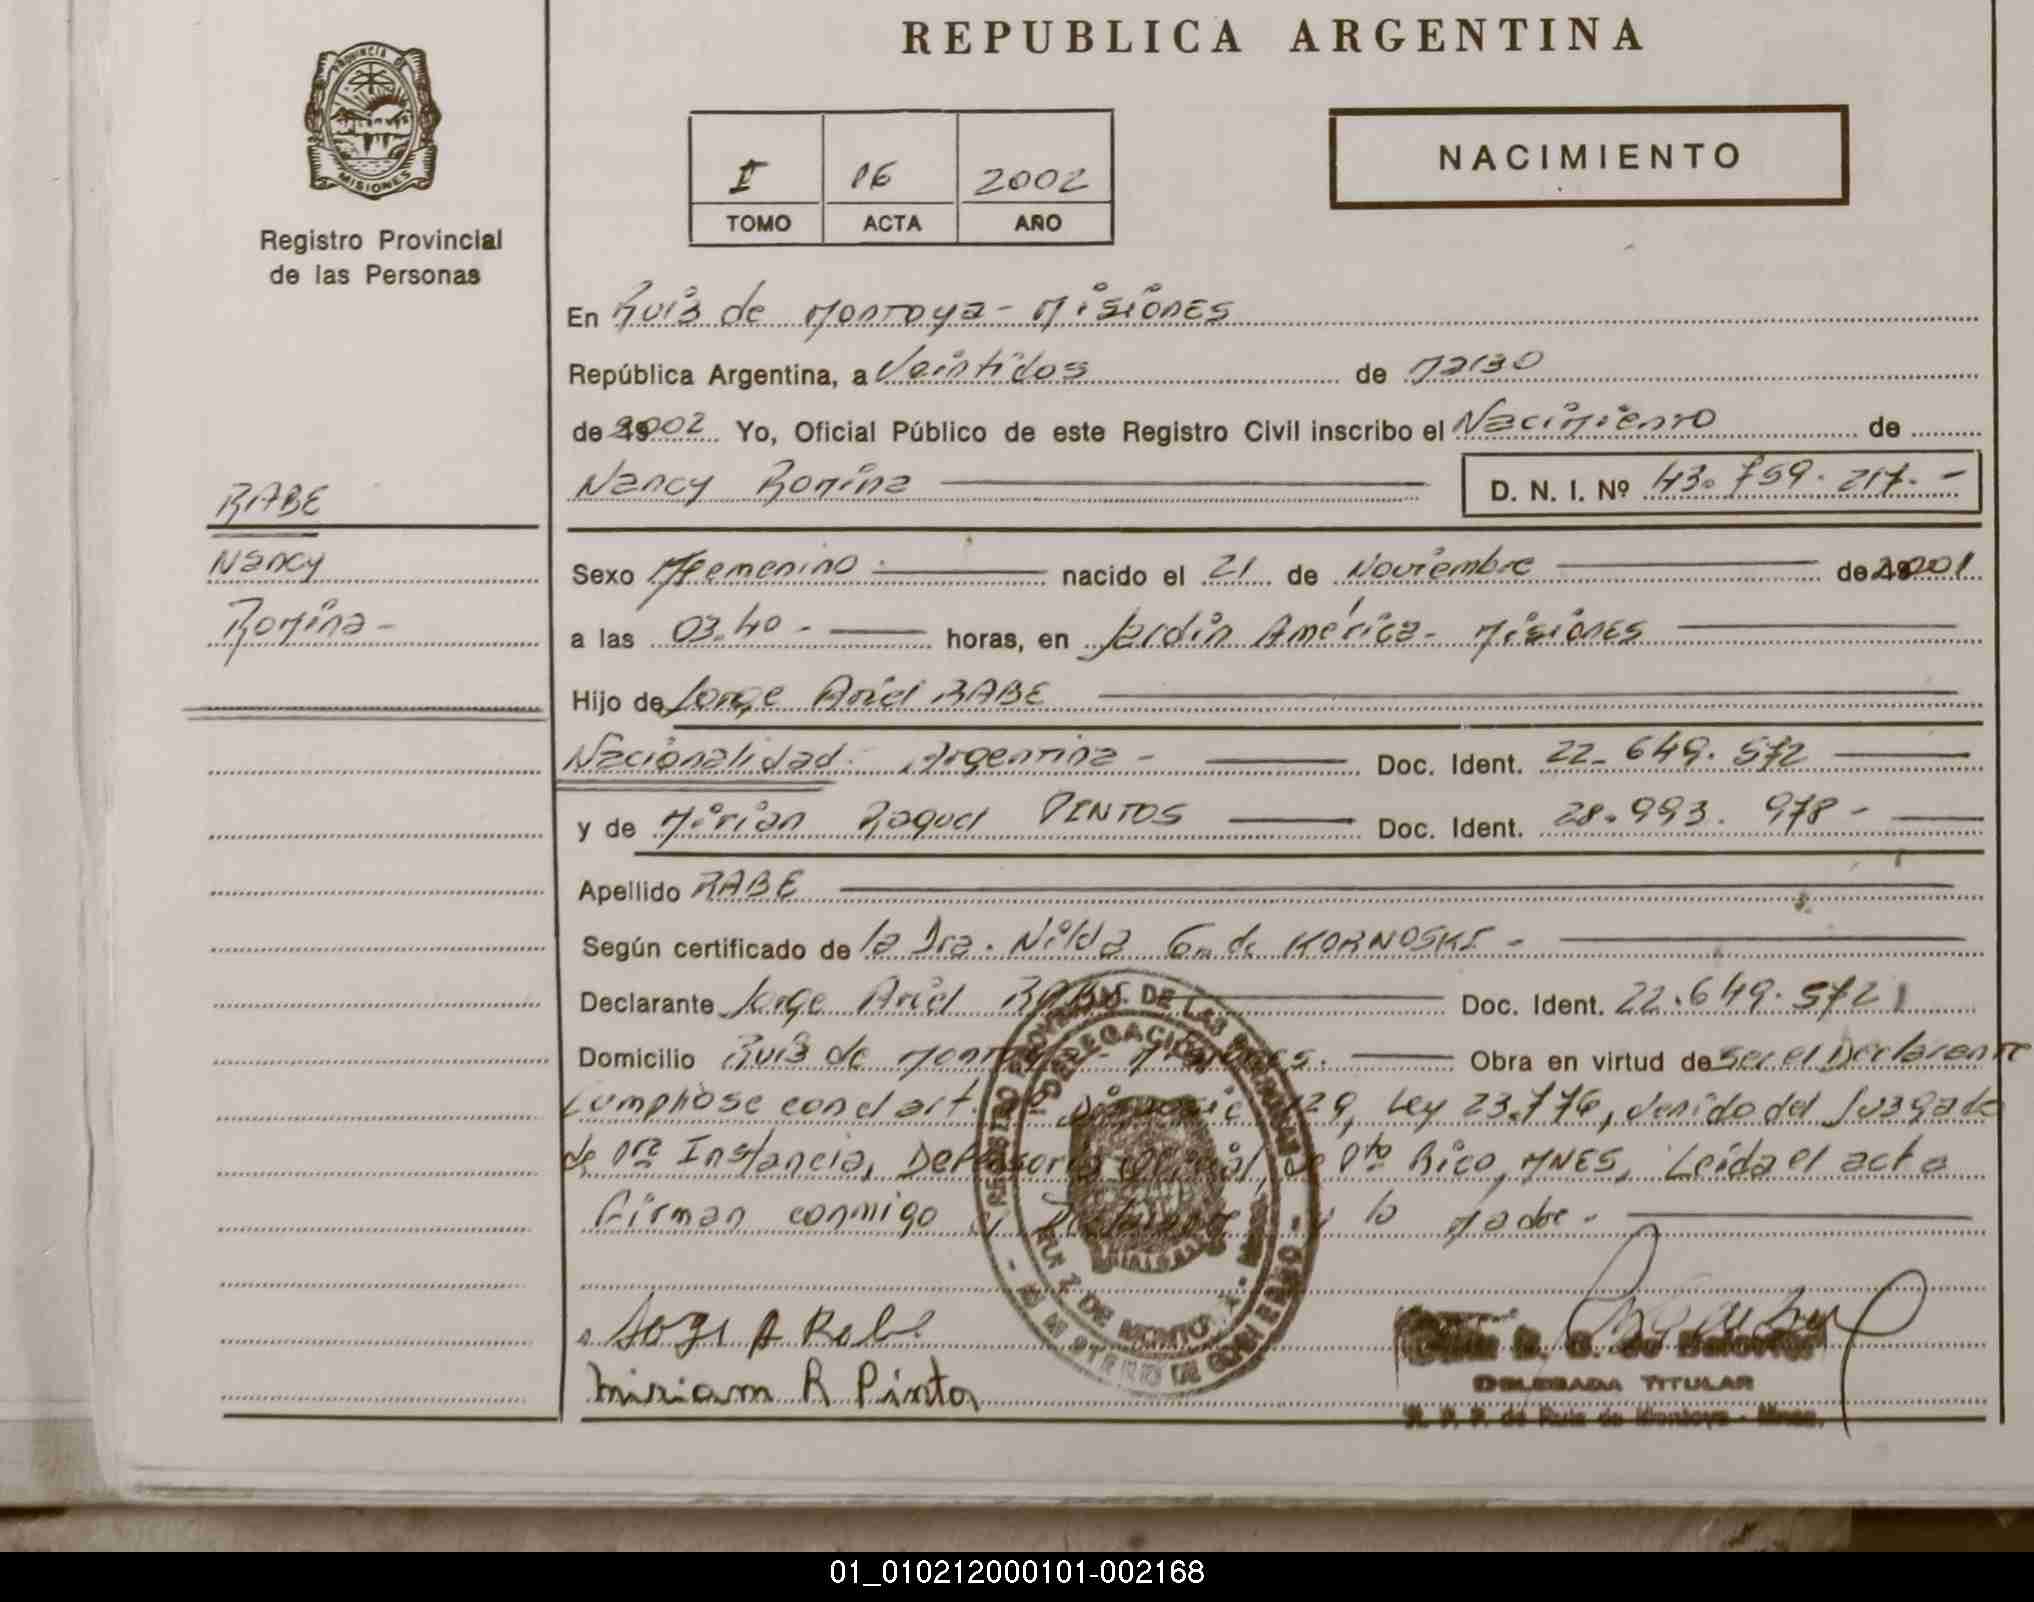 REPUBLICA ARGENTINA
PROVINCIA DE
MISIONES
Registro Provincial
de las Personas
I 16 2002
TOMO ACTA AÑO
NACIMIENTO
En Ruiz de Montoya - Misiones
República Argentina, a Veintidos de Marzo
de 2002 Yo, Oficial Público de este Registro Civil inscribo el Nacimiento de
Nancy Romina D. N. I. Nº 43.759.217.-
RABE
Nancy
Romina -
Sexo Femenino nacido el 21 de Noviembre de 2001
a las 03.40 - horas, en Jardín América - Misiones
Hijo de Jorge Ariel RABE
Nacionalidad Argentina - Doc. Ident. 22.649.572
y de Mirian Raquel PINTOS Doc. Ident. 28.993.978 -
Apellido RABE
Según certificado de la Dra. Nilda G. de KORNOSKI -
Declarante Jorge Ariel RABE Doc. Ident. 22.649.572
Domicilio Ruiz de Montoya - Misiones. Obra en virtud de ser el Declarante
Cumpliose con el art. 29, Ley 23.776, venido del Juzgado
de 1ra Instancia, Defensoria Oficial, de Pto Rico, MNES, Leida el acta
Firman conmigo el Declarante y la Madre -
REGISTRO PROVIN. DE LAS PERSONAS
DELEGACION
RUIZ DE MONTOYA
MINISTERIO DE GOBIERNO
Jorge A Rabe
Miriam R Pinto
DELEGADA TITULAR
R. P. P. de Ruiz de Montoya - Mnes.
01_010212000101-002168